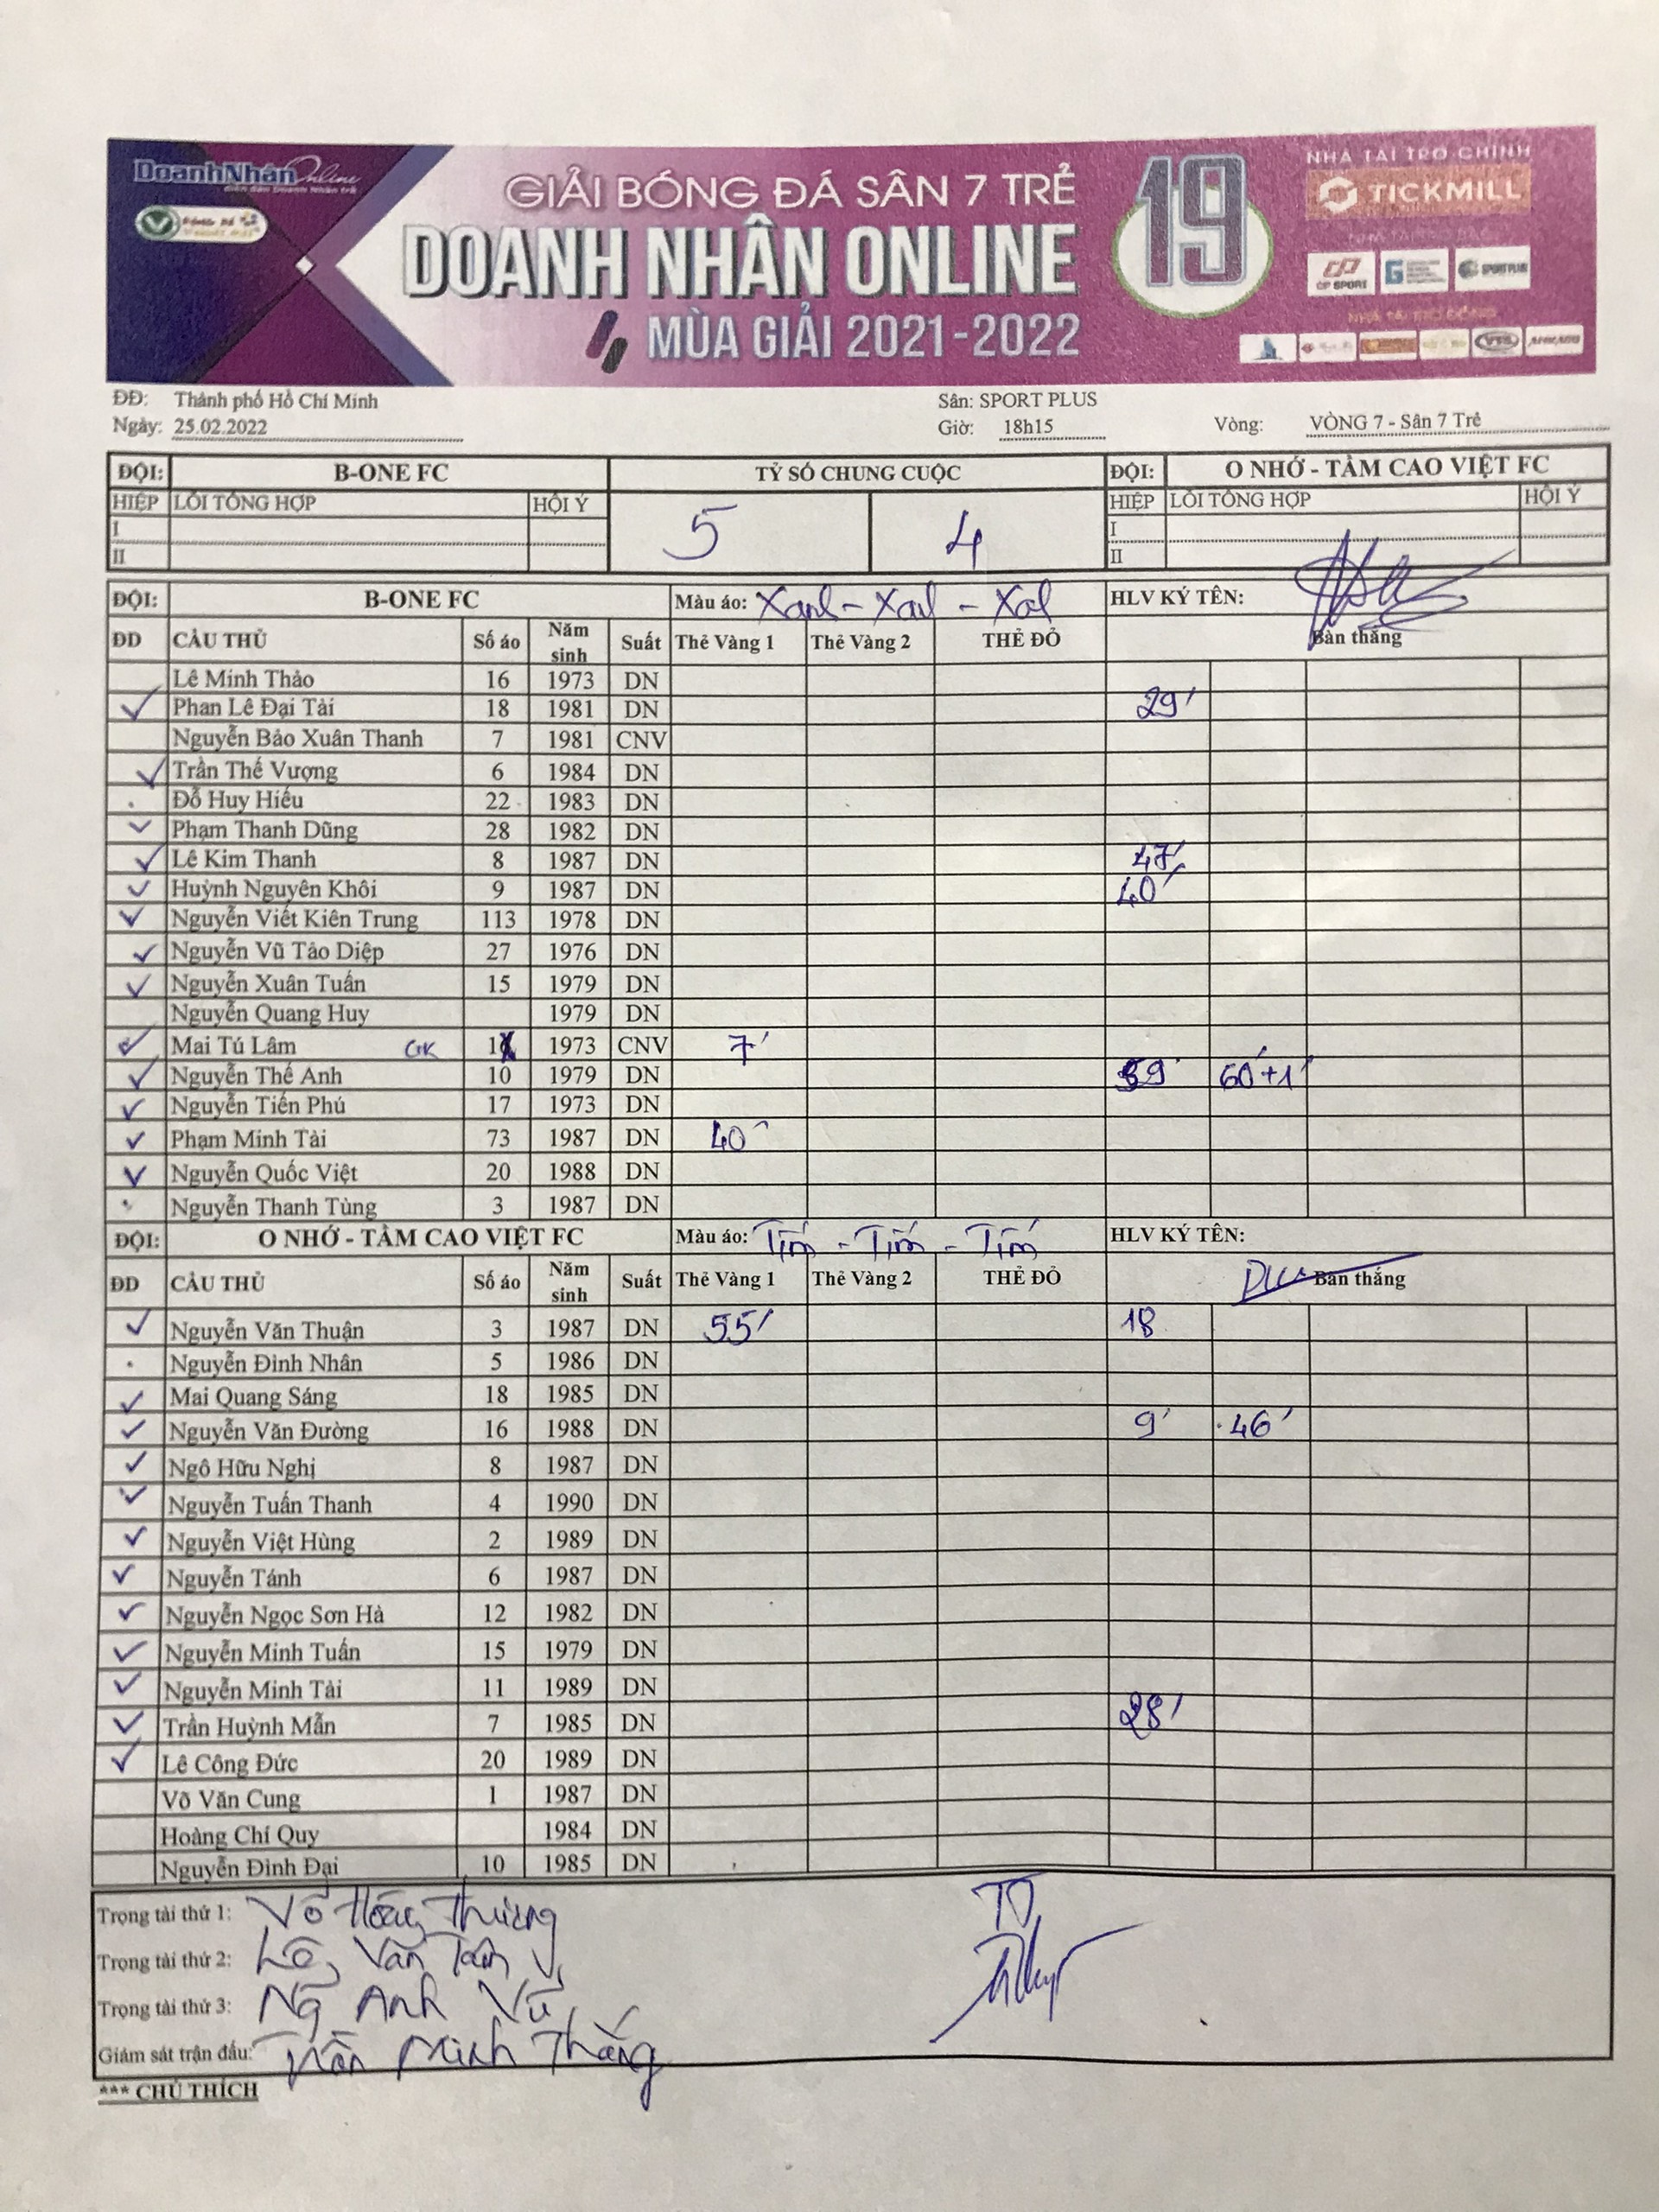 DoanhNhânOnline
GIẢI BÓNG ĐÁ SÂN 7 TRẺ
DOANH NHÂN ONLINE
MÙA GIẢI 2021-2022
19
NHÀ TÀI TRỢ CHÍNH
TICKMILL
CP SPORT
SPORT PLUS
ĐĐ: Thành phố Hồ Chí Minh Sân: SPORT PLUS
Ngày: 25.02.2022 Giờ: 18h15 Vòng: VÒNG 7 - Sân 7 Trẻ
ĐỘI: B-ONE FC TỶ SỐ CHUNG CUỘC ĐỘI: O NHỚ - TẦM CAO VIỆT FC
HIỆP LỖI TỔNG HỢP HỘI Ý 5 4 HIỆP LỖI TỔNG HỢP HỘI Ý
I I
II II
ĐỘI: B-ONE FC Màu áo: Xanh - Xanh - Xanh HLV KÝ TÊN:
ĐD CẦU THỦ Số áo Năm sinh Suất Thẻ Vàng 1 Thẻ Vàng 2 THẺ ĐỎ Bàn thắng
Lê Minh Thảo 16 1973 DN
Phan Lê Đại Tài 18 1981 DN 29'
Nguyễn Bảo Xuân Thanh 7 1981 CNV
Trần Thế Vượng 6 1984 DN
Đỗ Huy Hiếu 22 1983 DN
Phạm Thanh Dũng 28 1982 DN
Lê Kim Thanh 8 1987 DN 47'
Huỳnh Nguyên Khôi 9 1987 DN 40'
Nguyễn Viết Kiên Trung 113 1978 DN
Nguyễn Vũ Tảo Diệp 27 1976 DN
Nguyễn Xuân Tuấn 15 1979 DN
Nguyễn Quang Huy 1979 DN
Mai Tú Lâm GK 1 1973 CNV 7'
Nguyễn Thế Anh 10 1979 DN 59' 60'+1'
Nguyễn Tiến Phú 17 1973 DN
Phạm Minh Tài 73 1987 DN 40'
Nguyễn Quốc Việt 20 1988 DN
Nguyễn Thanh Tùng 3 1987 DN
ĐỘI: O NHỚ - TẦM CAO VIỆT FC Màu áo: Tím - Tím - Tím HLV KÝ TÊN:
ĐD CẦU THỦ Số áo Năm sinh Suất Thẻ Vàng 1 Thẻ Vàng 2 THẺ ĐỎ Bàn thắng
Nguyễn Văn Thuận 3 1987 DN 55' 18
Nguyễn Đình Nhân 5 1986 DN
Mai Quang Sáng 18 1985 DN
Nguyễn Văn Đường 16 1988 DN 9' 46'
Ngô Hữu Nghị 8 1987 DN
Nguyễn Tuấn Thanh 4 1990 DN
Nguyễn Việt Hùng 2 1989 DN
Nguyễn Tánh 6 1987 DN
Nguyễn Ngọc Sơn Hà 12 1982 DN
Nguyễn Minh Tuấn 15 1979 DN
Nguyễn Minh Tài 11 1989 DN
Trần Huỳnh Mẫn 7 1985 DN 28'
Lê Công Đức 20 1989 DN
Võ Văn Cung 1 1987 DN
Hoàng Chí Quy 1984 DN
Nguyễn Đình Đại 10 1985 DN
Trọng tài thứ 1: Võ Hồng Thương
Trọng tài thứ 2: Lê Văn Tâm
Trọng tài thứ 3: Ng Anh Vũ
Giám sát trận đấu: Trần Minh Thắng
*** CHÚ THÍCH